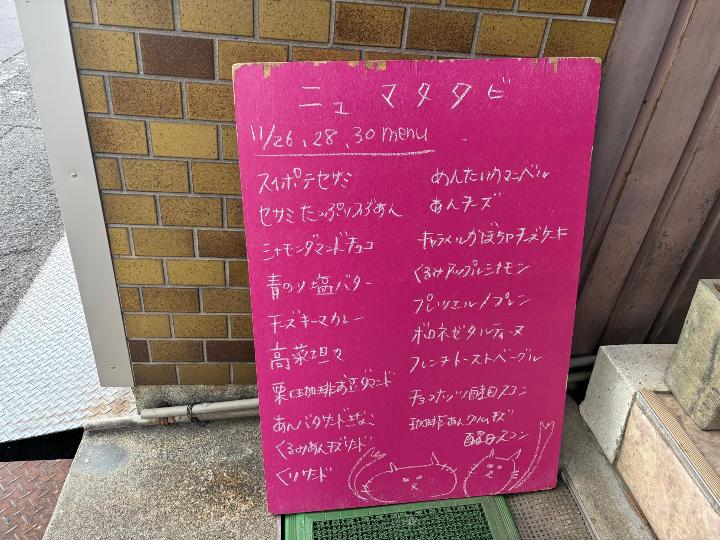 ニュー マタタビ
11/26、28、30 menu
スイポテセサミ
セサミたっぷりつぶあん
シナモンダマンドチョコ
青のり塩バター
チーズキーマカレー
高菜坦々
栗田珈琲あずダマンド
あんバタサンドきなこ
くるみあんチーズサンド
くりサンド
めんたいカマンベール
あんチーズ
キャラメルかぼちゃチーズケーキ
くるみアップルシナモン
プレッツェル/プレーン
ボロネーゼタルティーヌ
フレンチトーストベーグル
チョコナッツ酵母スコーン
珈琲あんクリームチーズ
酵母スコーン